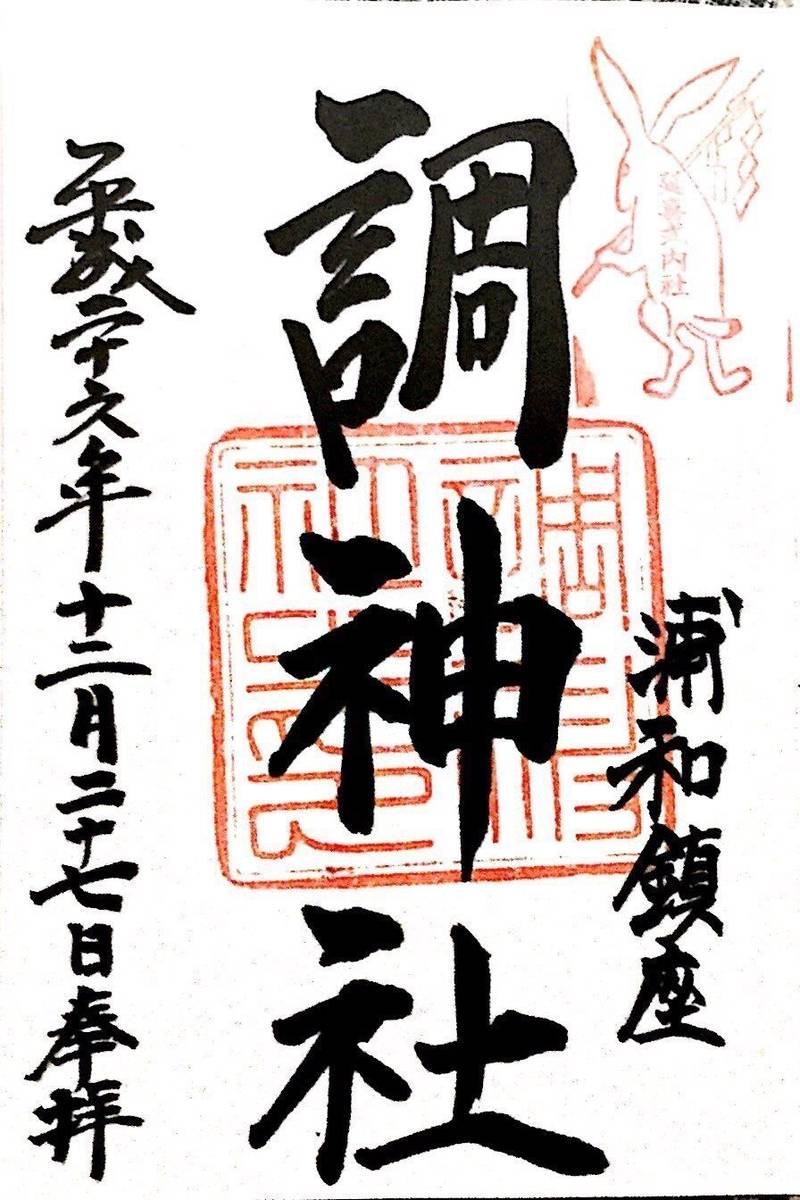 延喜式内社
浦和鎮座
調神社
平成二十六年十二月二十七日奉拝